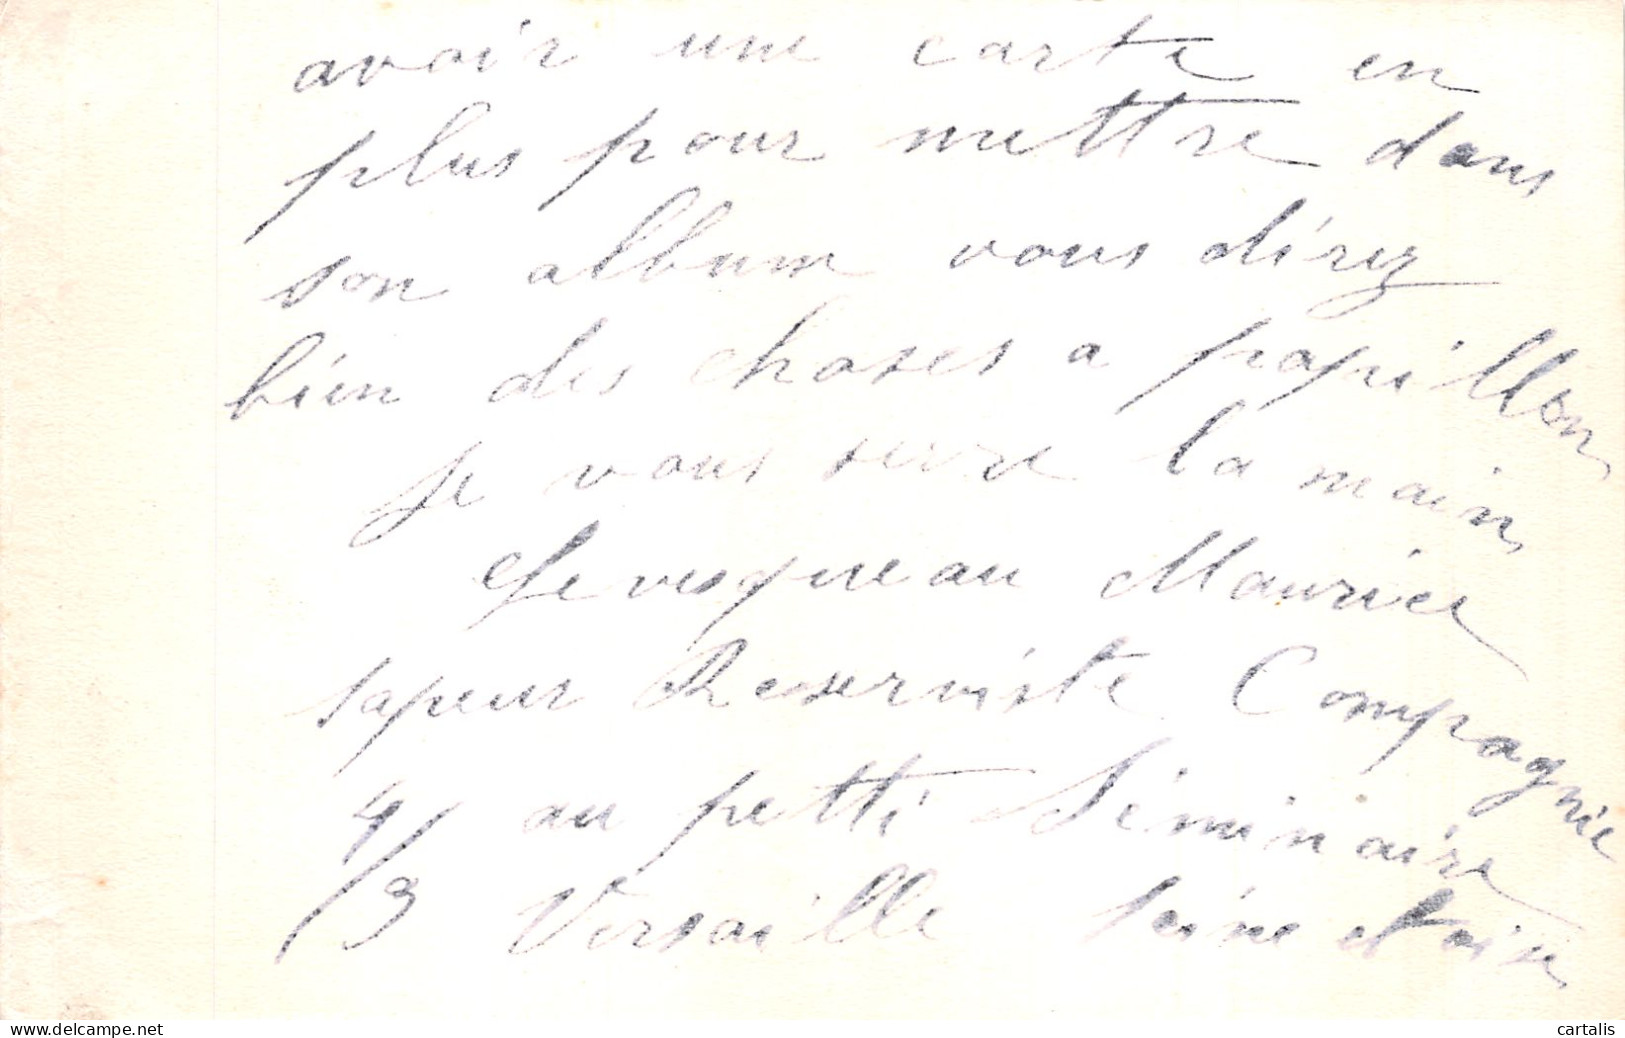 avoir une carte en
plus pour mettre dans
son album vous direz
bien des choses a papillon
je vous serre la main
Levesqueau Maurice
sapeur Reserviste Compagnie
4/3 au petti Séminaire
Versaille Seine et oise
www.delcampe.net
cartalis